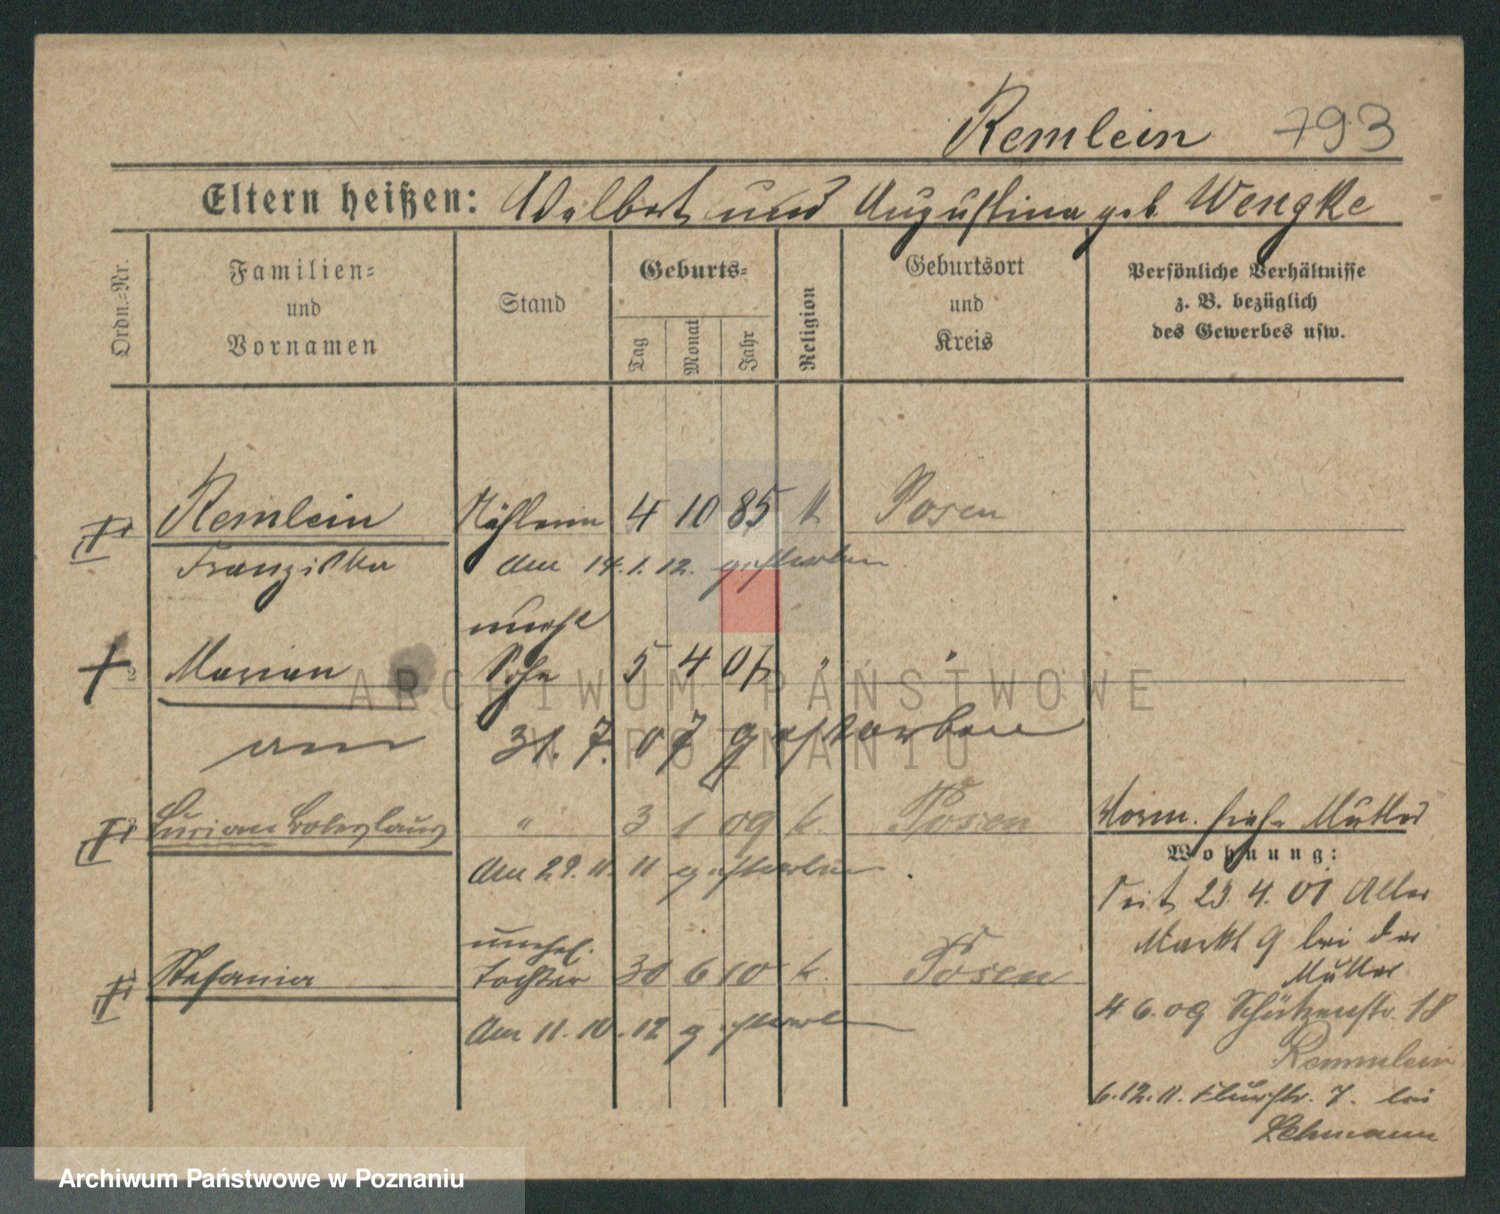 Remlein 793
Eltern heißen: Adalbert und Augustina geb. Wengke
Ordn.-Nr.
Familien-
und
Vornamen
Stand
Geburts-
Tag
Monat
Jahr
Religion
Geburtsort
und
Kreis
Persönliche Verhältnisse
z. B. bezüglich
des Gewerbes usw.
Remlein Nähterin 4 10 85 k Posen
Franziska am 14.1.12. gestorben
unehl
2 Marian Sohn 5 4 07 " "
am 31. 7. 07 gestorben
Lucian Boleslaus " 3 1 09 k Posen
am 29.11.11 gestorben
unehel.
Stefania Tochter 30 6 10 k. Posen
am 11.10.12 gestorben
Vorm. siehe Mutter
Wohnung:
seit 23.4.07 Alter
Markt 9 bei der
Mutter
4 6.09 Schützenstr. 18
Remmlein
6.12.11. Flurstr. 7. bei
Lehmann
ARCHIWUM PAŃSTWOWE
W POZNANIU
Archiwum Państwowe w Poznaniu